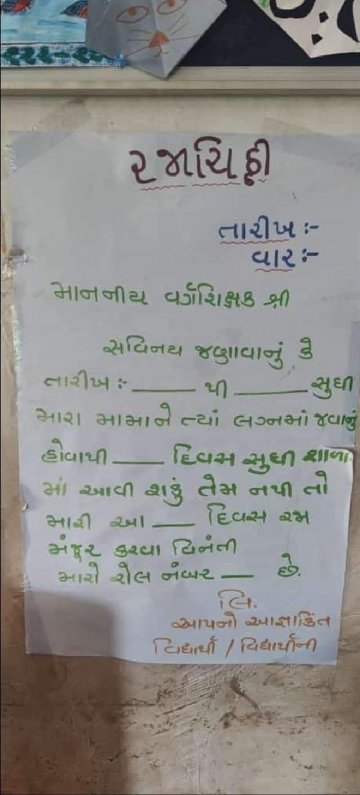 રજાચિઠ્ઠી
તારીખ :-
વાર :-
માનનીય વર્ગશિક્ષક શ્રી
સવિનય જણાવાનું કે
તારીખ :- ______ થી ______ સુધી
મારા મામાને ત્યાં લગ્નમાં જવાનું
હોવાથી ____ દિવસ સુધી શાળા
માં આવી શકું તેમ નથી તો
મારી આ ___ દિવસ રજા
મંજૂર કરવા વિનંતી
મારો રોલ નંબર ___ છે.
લિ.
આપનો આજ્ઞાંકિત
વિદ્યાર્થી / વિદ્યાર્થીની